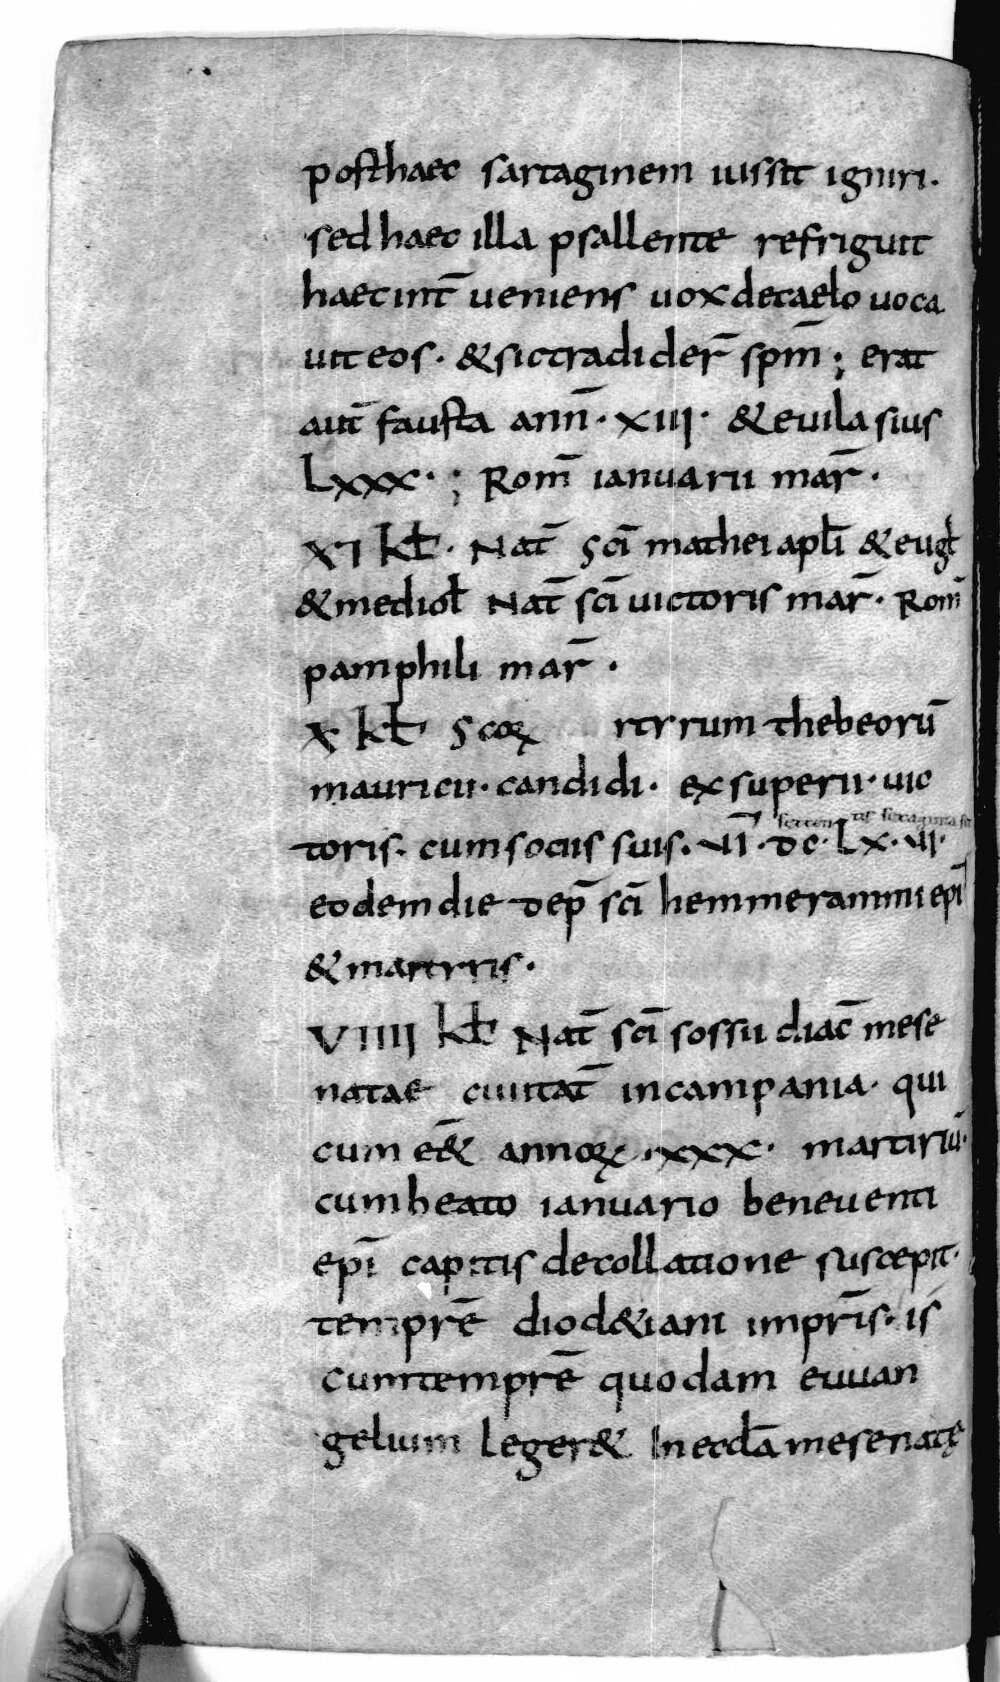 posthaec sartaginem iussit igniri.
sed haec illa psallente refriguit
haec int̄ ueniens uox decaelo uoca
uit eos. & sic tradider̄ spm̄; erat
aut̄ fausta ann̄. XIII. & euilasius
LXXX.; Rom̄ ianuarii mar̄.
XI kł. Nat̄ sc̄i mathei apl̄i & eugł
& mediol̄ Nat̄ sc̄i uictoris mar̄. Rom̄
pamphili mar̄.
X kł scoꝝ rtyrum thebeorū
mauricii. candidi. exsuperii. uic
toris. cum sociis suis. V̄Ī. DC. LX. VI.
eodem die dep̄ sc̄i hemmerammi epī
& martyris.
VIIII kł Nat̄ sc̄i sossii diac̄ mese
natae ciuitat̄ in campania. qui
cum ēēt annoꝝ. XXX. martiriū.
cum beato ianuario beneuenti
epī capitis decollatione suscepit.
tempr̄e diocl&iani impr̄is. is
cum tempr̄e quodam euuan
gelium leger& In eccl̄a mesenatę